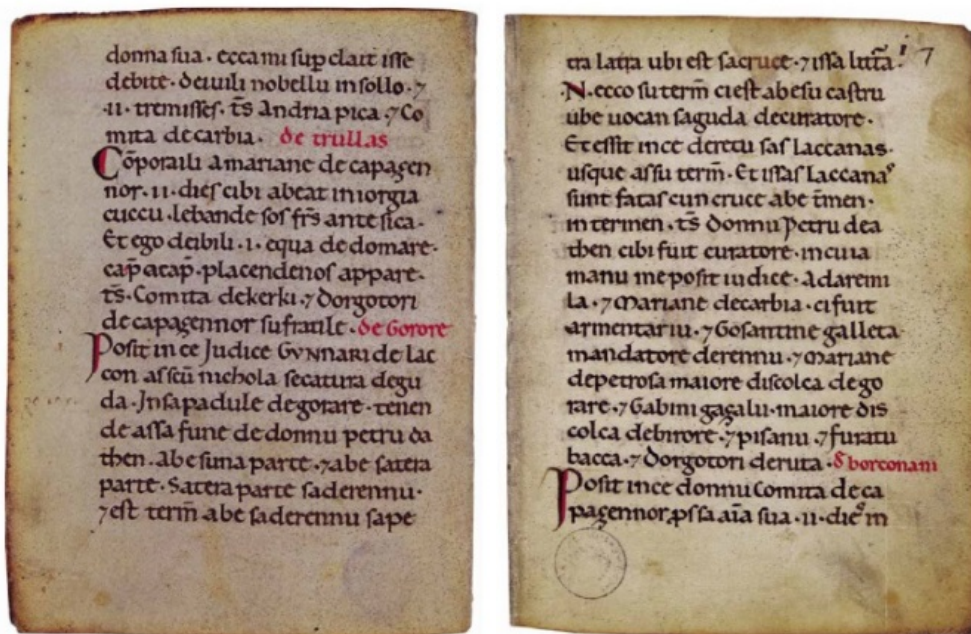 donna sua · ecca mi sup clait isse
debite · deiuili nobellu in sollo · ⁊
·ii· tremisses · ts̄ Andria pica ⁊ Co
mita de carbia · de trullas
Cōporaili a mariane de capagen
nor ·ii· dies cibi abeat in iorgia
cuccu · lebande sos fr̄s ante sica ·
Et ego deibili ·i· equa de domare ·
cap̄ acap̄ · placendenos appare ·
ts̄ · Comita de kerki · ⁊ Dorgotori
de capagennor su fratile · de Gorore
Posit in ce Judice GVNNARI de Lac
con as scū nichola secatura de gu
da · Jnsa padule de gorare · tenen
de assa fune de donnu petru da
then · Abesuna parte · ⁊ abe satera
parte · Satera parte sa de rennu ·
⁊ est term̄ abe sa de rennu sa pe
tra latra ubi est sa cruce · ⁊ issa
7
N · ecco su term̄ ci est abe su castru
ube uocan saguda de curatore ·
Et essit in ce derectu sas laccanas ·
usque assu term̄ · Et issas laccanas
sunt fatas cun cruce abe t̄men ·
in termen · ts̄ donnu Petru de a
then cibi fuit curatore · in cuia
manu me posit iudice · a daremi
la · ⁊ Mariane de carbia · ci fuit
armentariu · ⁊ Gosantine galleta
mandatore de rennu · ⁊ Mariane
de petrosa maiore discolca de go
rare · ⁊ Gabini gagalu · maiore dis
colca de birore · ⁊ pisanu · ⁊ furatu
bacca · ⁊ Dorgotori de ruta · đ borconani
Posit in ce donnu Comita de ca
pagennor ꝓssa aīa sua ·ii· dies in